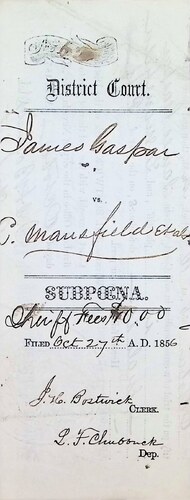 District Court.
James Gaspar
vs.
C. Mansfield Et als
SUBPŒNA.
Sheriff Fees $0.00
FILED Oct 27th A. D. 1856
J. H. Bostwick
CLERK.
L. F. Chubbuck
Dep.